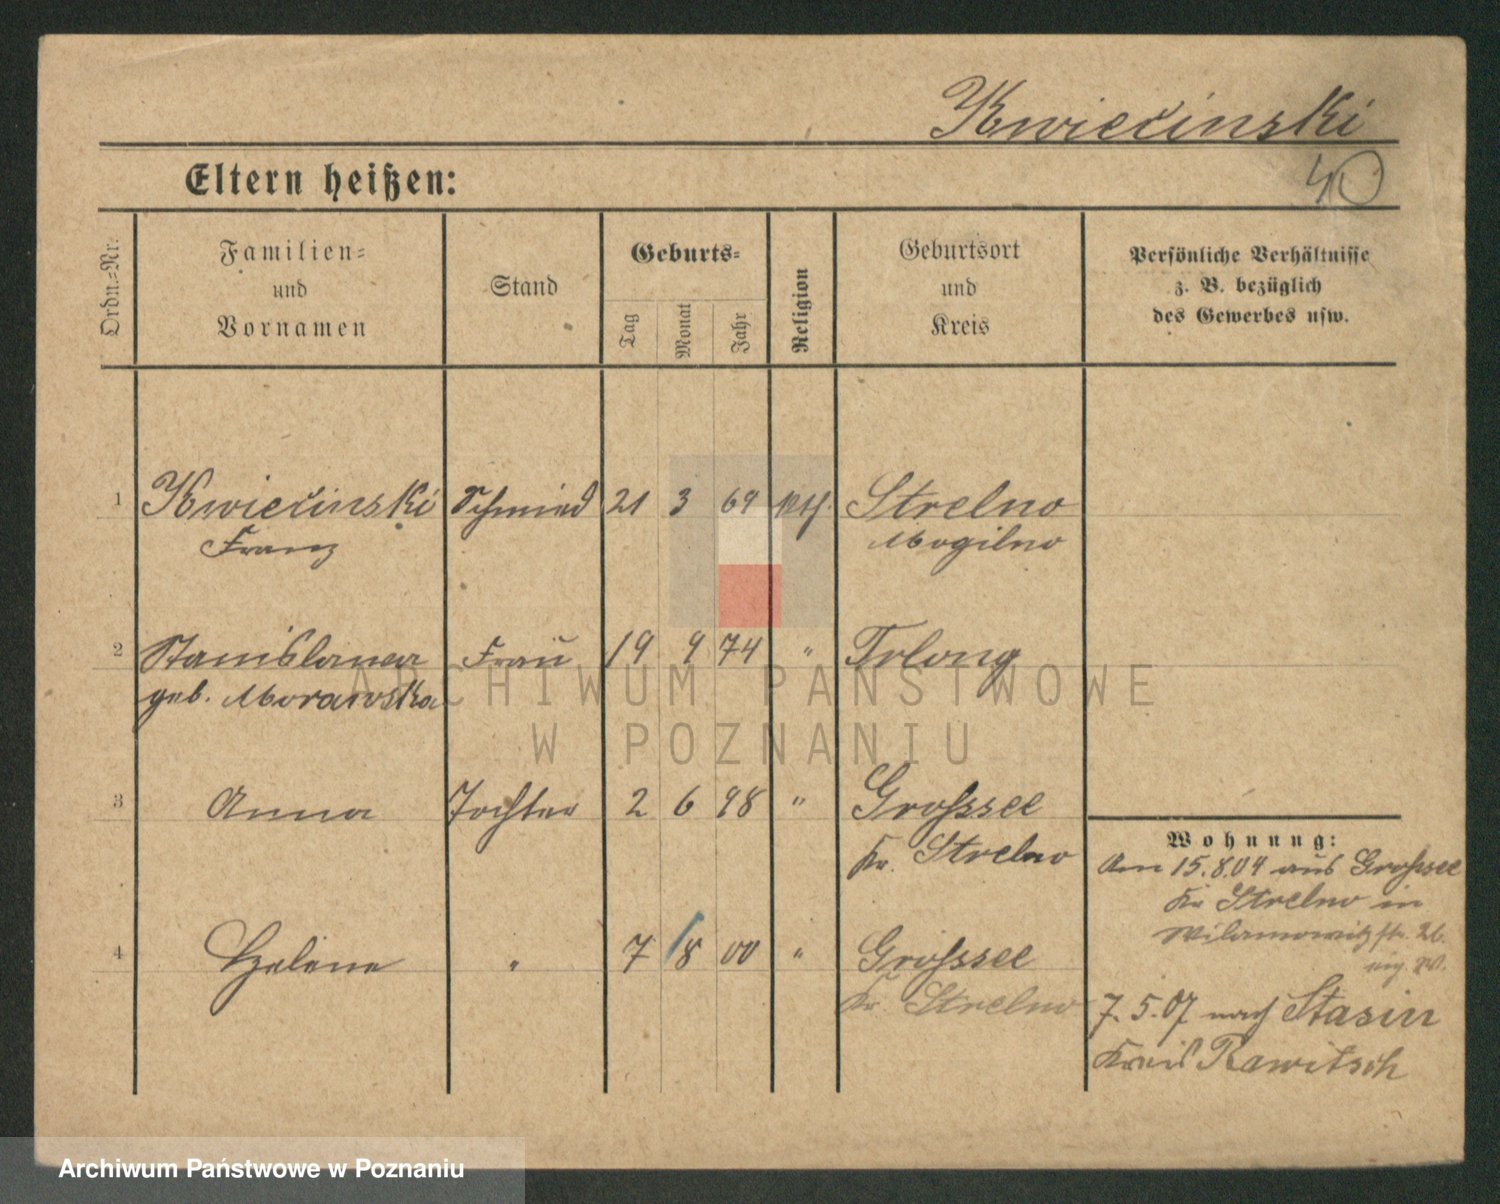 Kwiećinski
40
Eltern heißen:
Ordn.=Nr.
Familien=
und
Vornamen
Stand
Geburts=
Tag
Monat
Jahr
Religion
Geburtsort
und
Kreis
Persönliche Verhältnisse
z. B. bezüglich
des Gewerbes usw.
1 Kwiećinski Schmied 21 3 69 kth. Strelno
Franz Mogilno
2 Stanislawa Frau 19 9 74 " Trlong
geb. Morawska
3 Anna Tochter 2 6 98 " Grossee
Kr. Strelno
Wohnung:
Am 15.8.04 aus Grossee
Kr Strelno in
Wilamowitzstr. 26.
4 Helene " 7 8 00 " Grossee
Kr. Strelno
7.5.07 nach Stasin
Kreis Rawitsch
ARCHIWUM PAŃSTWOWE
W POZNANIU
Archiwum Państwowe w Poznaniu